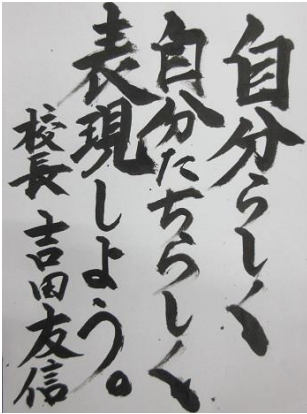 自分らしく
自分たちらしく
表現しよう。
校長 吉田友信